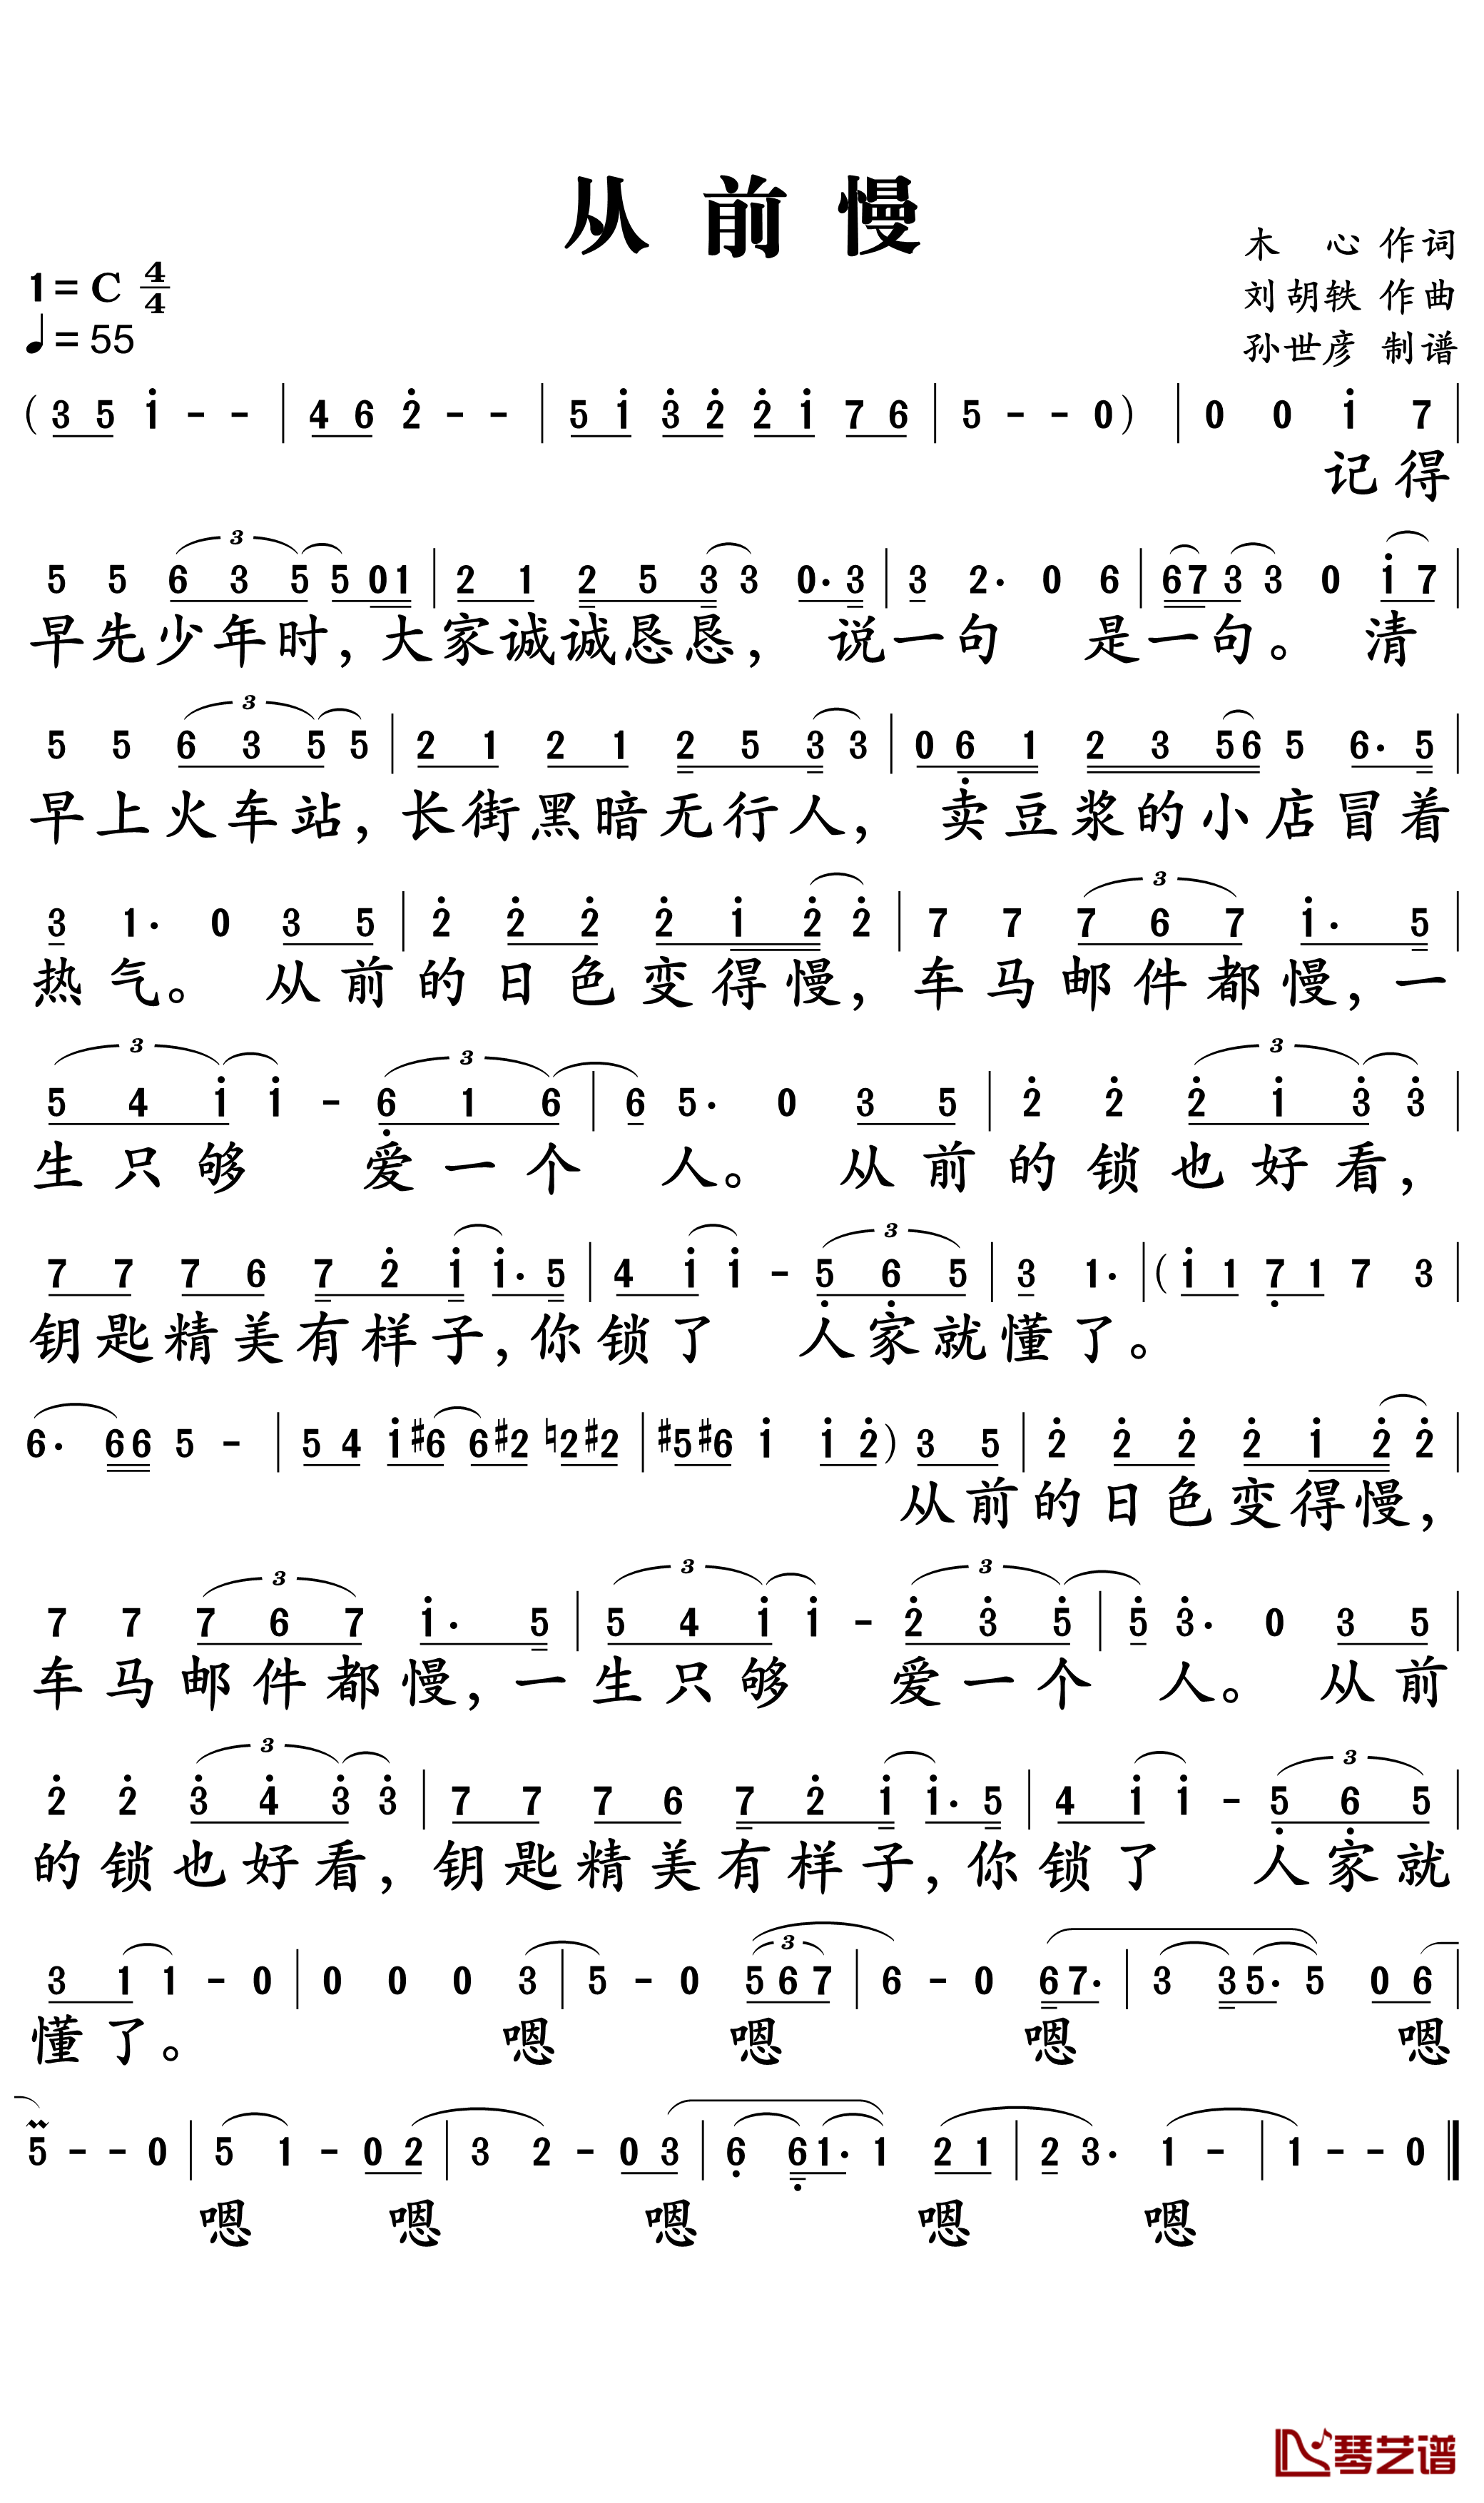 从前慢
木心 作词
1=C 4/4
刘胡轶 作曲
♩=55
孙世彦 制谱
(3 5 i - - | 4 6 2̇ - - | 5 i 3̇ 2̇ 2̇ i 7 6 | 5 - - 0) | 0 0 i 7 |
记得
5 5 6 3 5 5 0 1 | 2 1 2 5 3 3 0· 3 | 3 2· 0 6 | 6 7 3 3 0 i 7 |
早先少年时,大家诚诚恳恳,说一句 是一句。清
5 5 6 3 5 5 | 2 1 2 1 2 5 3 3 | 0 6̣ 1 2 3 5 6 5 6· 5 |
早上火车站,长街黑暗无行人,卖豆浆的小店冒着
3 1· 0 3 5 | 2̇ 2̇ 2̇ 2̇ i 2̇ 2̇ | 7 7 7 6 7 i· 5 |
热气。从前的日色变得慢,车马邮件都慢,一
5 4 i i - 6̣ 1 6 | 6 5· 0 3 5 | 2̇ 2̇ 2̇ i 3̇ 3̇ |
生只够 爱一个 人。从前的锁也好看,
7 7 7 6 7 2̇ i i· 5 | 4 i i - 5̣ 6̣ 5 | 3 1· | (i 1 7̣ 1 7 3 |
钥匙精美有样子,你锁了 人家就懂了。
6· 6 6 5 - | 5 4 i #6 6 #2 ♮2 #2 | #5 #6 i i 2̇) 3 5 | 2̇ 2̇ 2̇ 2̇ i 2̇ 2̇ |
从前的日色变得慢,
7 7 7 6 7 i· 5 | 5 4 i i - 2̇ 3̇ 5̇ | 5̇ 3̇· 0 3 5 |
车马邮件都慢,一生只够 爱一个 人。从前
2̇ 2̇ 3̇ 4̇ 3̇ 3̇ | 7 7 7 6 7 2̇ i i· 5 | 4 i i - 5̣ 6̣ 5 |
的锁也好看,钥匙精美有样子,你锁了 人家就
3 1 1 - 0 | 0 0 0 3 | 5 - 0 5 6 7 | 6 - 0 6 7· | 3 3 5· 5 0 6 |
懂了。 嗯 嗯 嗯 嗯
5 - - 0 | 5 1 - 0 2 | 3 2 - 0 3 | 6̣ 6̣ 1· 1 2 1 | 2 3· 1 - | 1 - - 0 ‖
嗯 嗯 嗯 嗯 嗯
琴艺谱